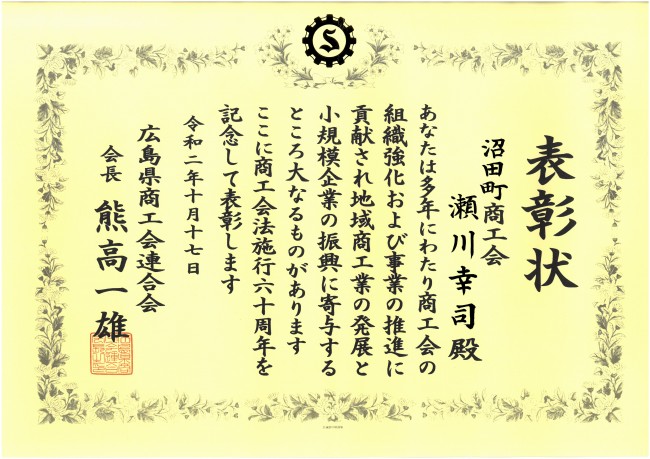 表彰状
沼田町商工会
瀬川幸司殿
あなたは多年にわたり商工会の
組織強化および事業の推進に
貢献され地域商工業の発展と
小規模企業の振興に寄与する
ところ大なるものがあります
ここに商工会法施行六十周年を
記念して表彰します
令和二年十月十七日
広島県商工会連合会
会長 熊高一雄